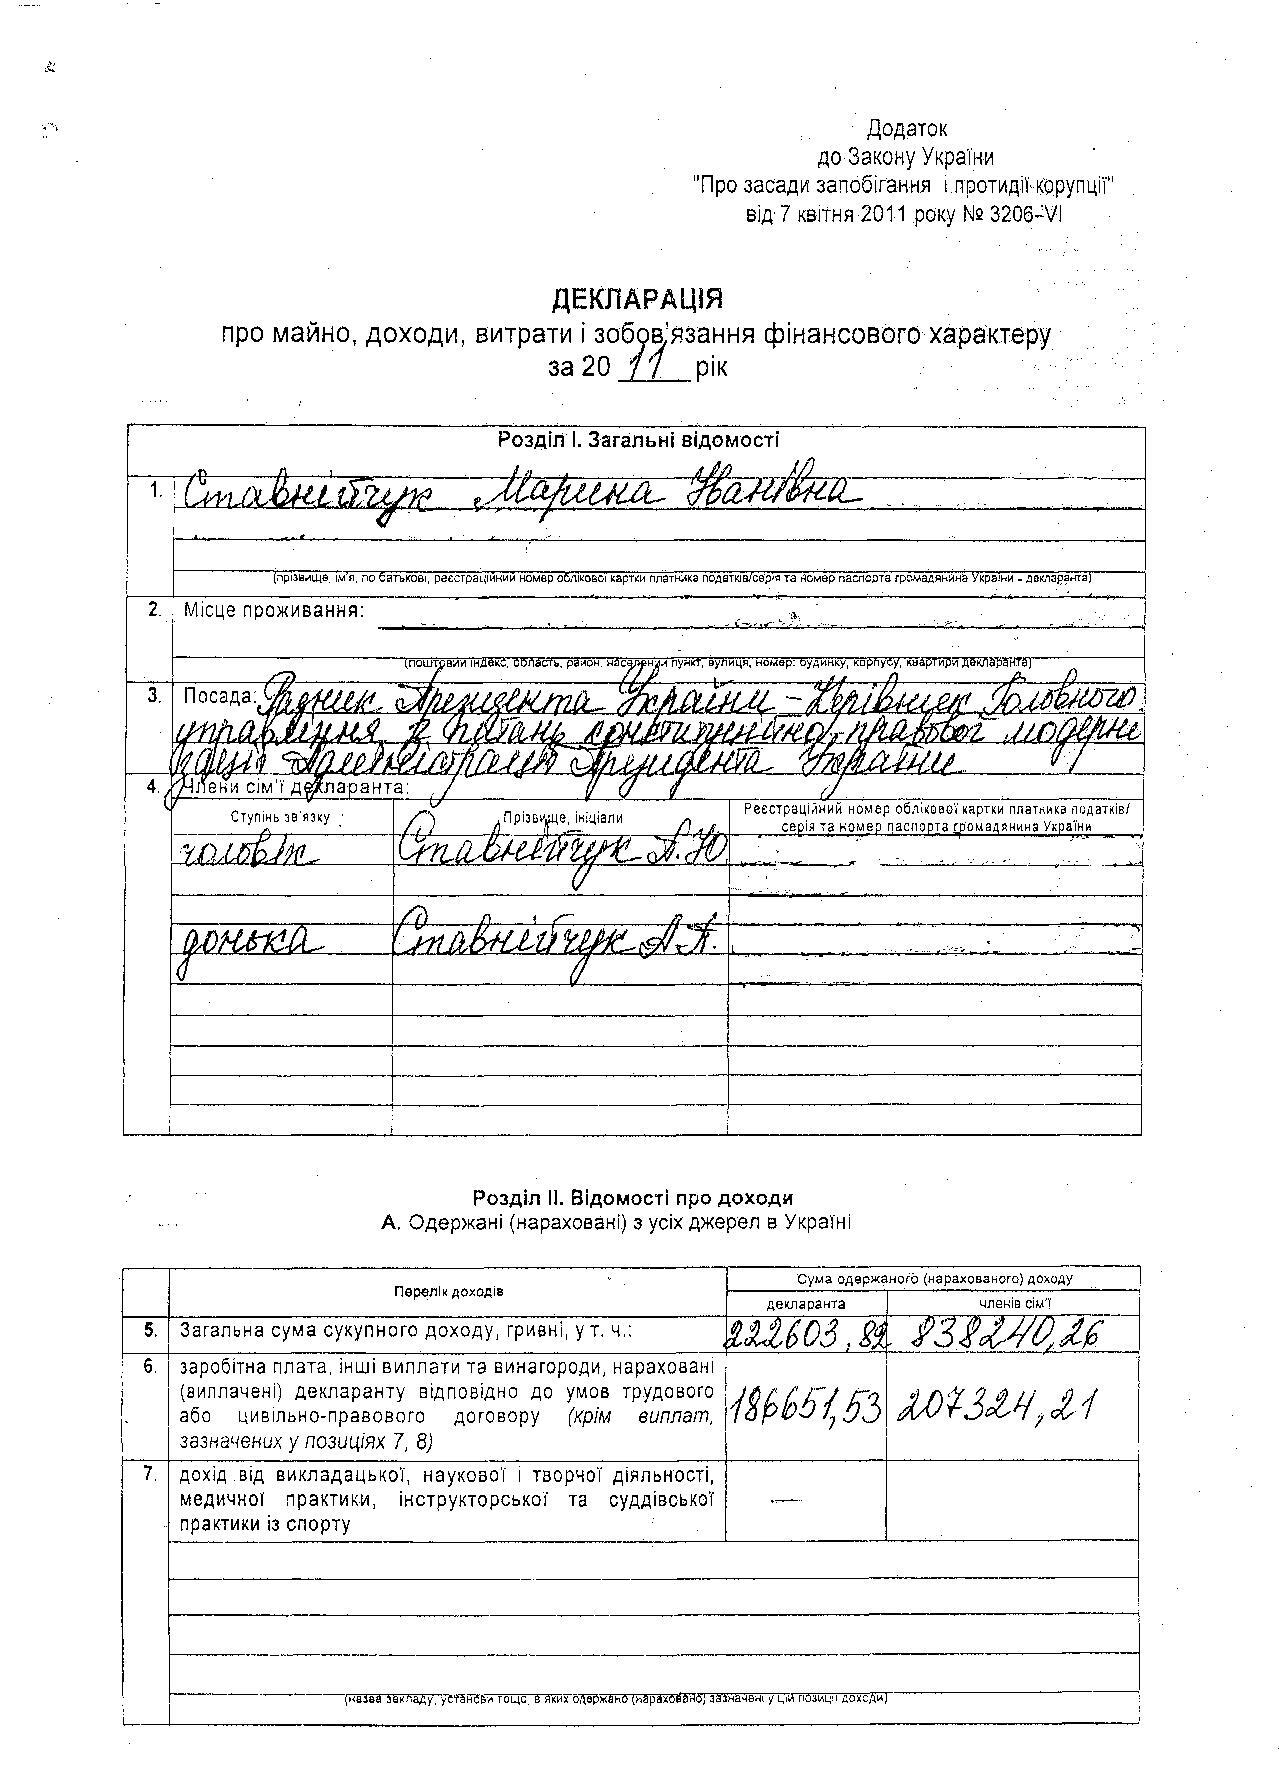 Додаток
до Закону України
"Про засади запобігання і протидії корупції"
від 7 квітня 2011 року № 3206-VI
ДЕКЛАРАЦІЯ
про майно, доходи, витрати і зобов'язання фінансового характеру
за 20 11 рік
Розділ І. Загальні відомості
1. Ставнійчук Марина Іванівна
(прізвище, ім'я, по батькові, реєстраційний номер облікової картки платника податків/серія та номер паспорта громадянина України - декларанта)
2. Місце проживання:
(поштовий індекс, область, район, населений пункт, вулиця, номер: будинку, корпусу, квартири декларанта)
3. Посада: Радник Президента України - Керівник Головного
управління з питань конституційно-правової модерні
зації Адміністрації Президента України
4. Члени сім'ї декларанта:
Ступінь зв'язку Прізвище, ініціали Реєстраційний номер облікової картки платника податків/
серія та номер паспорта громадянина України
чоловік Ставнійчук А.Ю
донька Ставнійчук А.А.
Розділ ІІ. Відомості про доходи
А. Одержані (нараховані) з усіх джерел в Україні
Перелік доходів Сума одержаного (нарахованого) доходу
декларанта членів сім'ї
5. Загальна сума сукупного доходу, гривні, у т. ч.: 222603,82 838240,26
6. заробітна плата, інші виплати та винагороди, нараховані
(виплачені) декларанту відповідно до умов трудового
або цивільно-правового договору (крім виплат, 186651,53 207324,21
зазначених у позиціях 7, 8)
7. дохід від викладацької, наукової і творчої діяльності,
медичної практики, інструкторської та суддівської —
практики із спорту
(назва закладу, установи тощо, в яких одержано (нараховано) зазначені у цій позиції доходи)